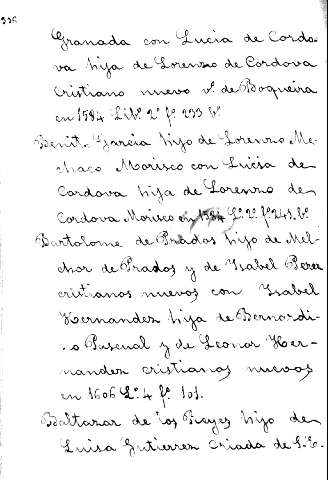 336
Granada con Lucia de Cordo-
va hija de Lorenzo de Cordova
Cristiano nuevo v.º de Boqueira
en 1584 Lib.º 2.º f.º 233 b.º
Benit. Garcia hijo de Lorenzo Me-
chaco Morisco con Lucia de
Cordova hija de Lorenzo de
Cordova Morisco en 1584 L.º 2.º f.º 241. b.º
Bartolome de Prados hijo de Mel-
chor de Prados y de Isabel Perez
cristianos nuevos con Isabel
Hernandez hija de Bernardi-
no Pascual y de Leonor Her-
nandez cristianos nuevos
en 1606 L.º 4 f.º 101.
Baltazar de los Reyes hijo de
Luisa Gutierrez criada de